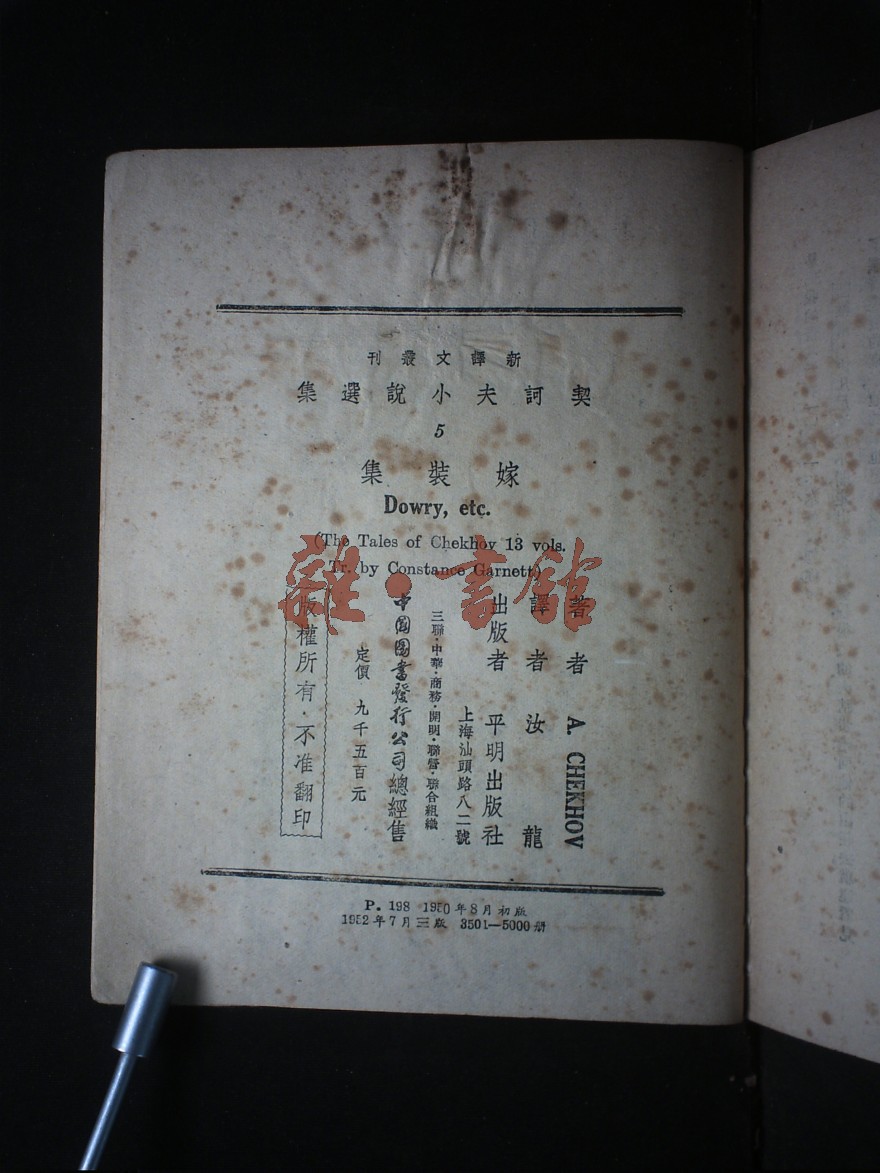 新譯文叢刊
契訶夫小說選集
5
嫁裝集
Dowry, etc.
(The Tales of Chekhov 13 vols.
Tr. by Constance Garnett)
著者 A. CHEKHOV
譯者 汝龍
出版者 平明出版社
上海汕頭路八二號
三聯·中華·商務·開明·聯營·聯合組織
中國圖書發行公司總經售
定價 九千五百元
版權所有·不准翻印
P. 198 1950年8月初版
1952年7月三版 3501—5000册
雜·書館